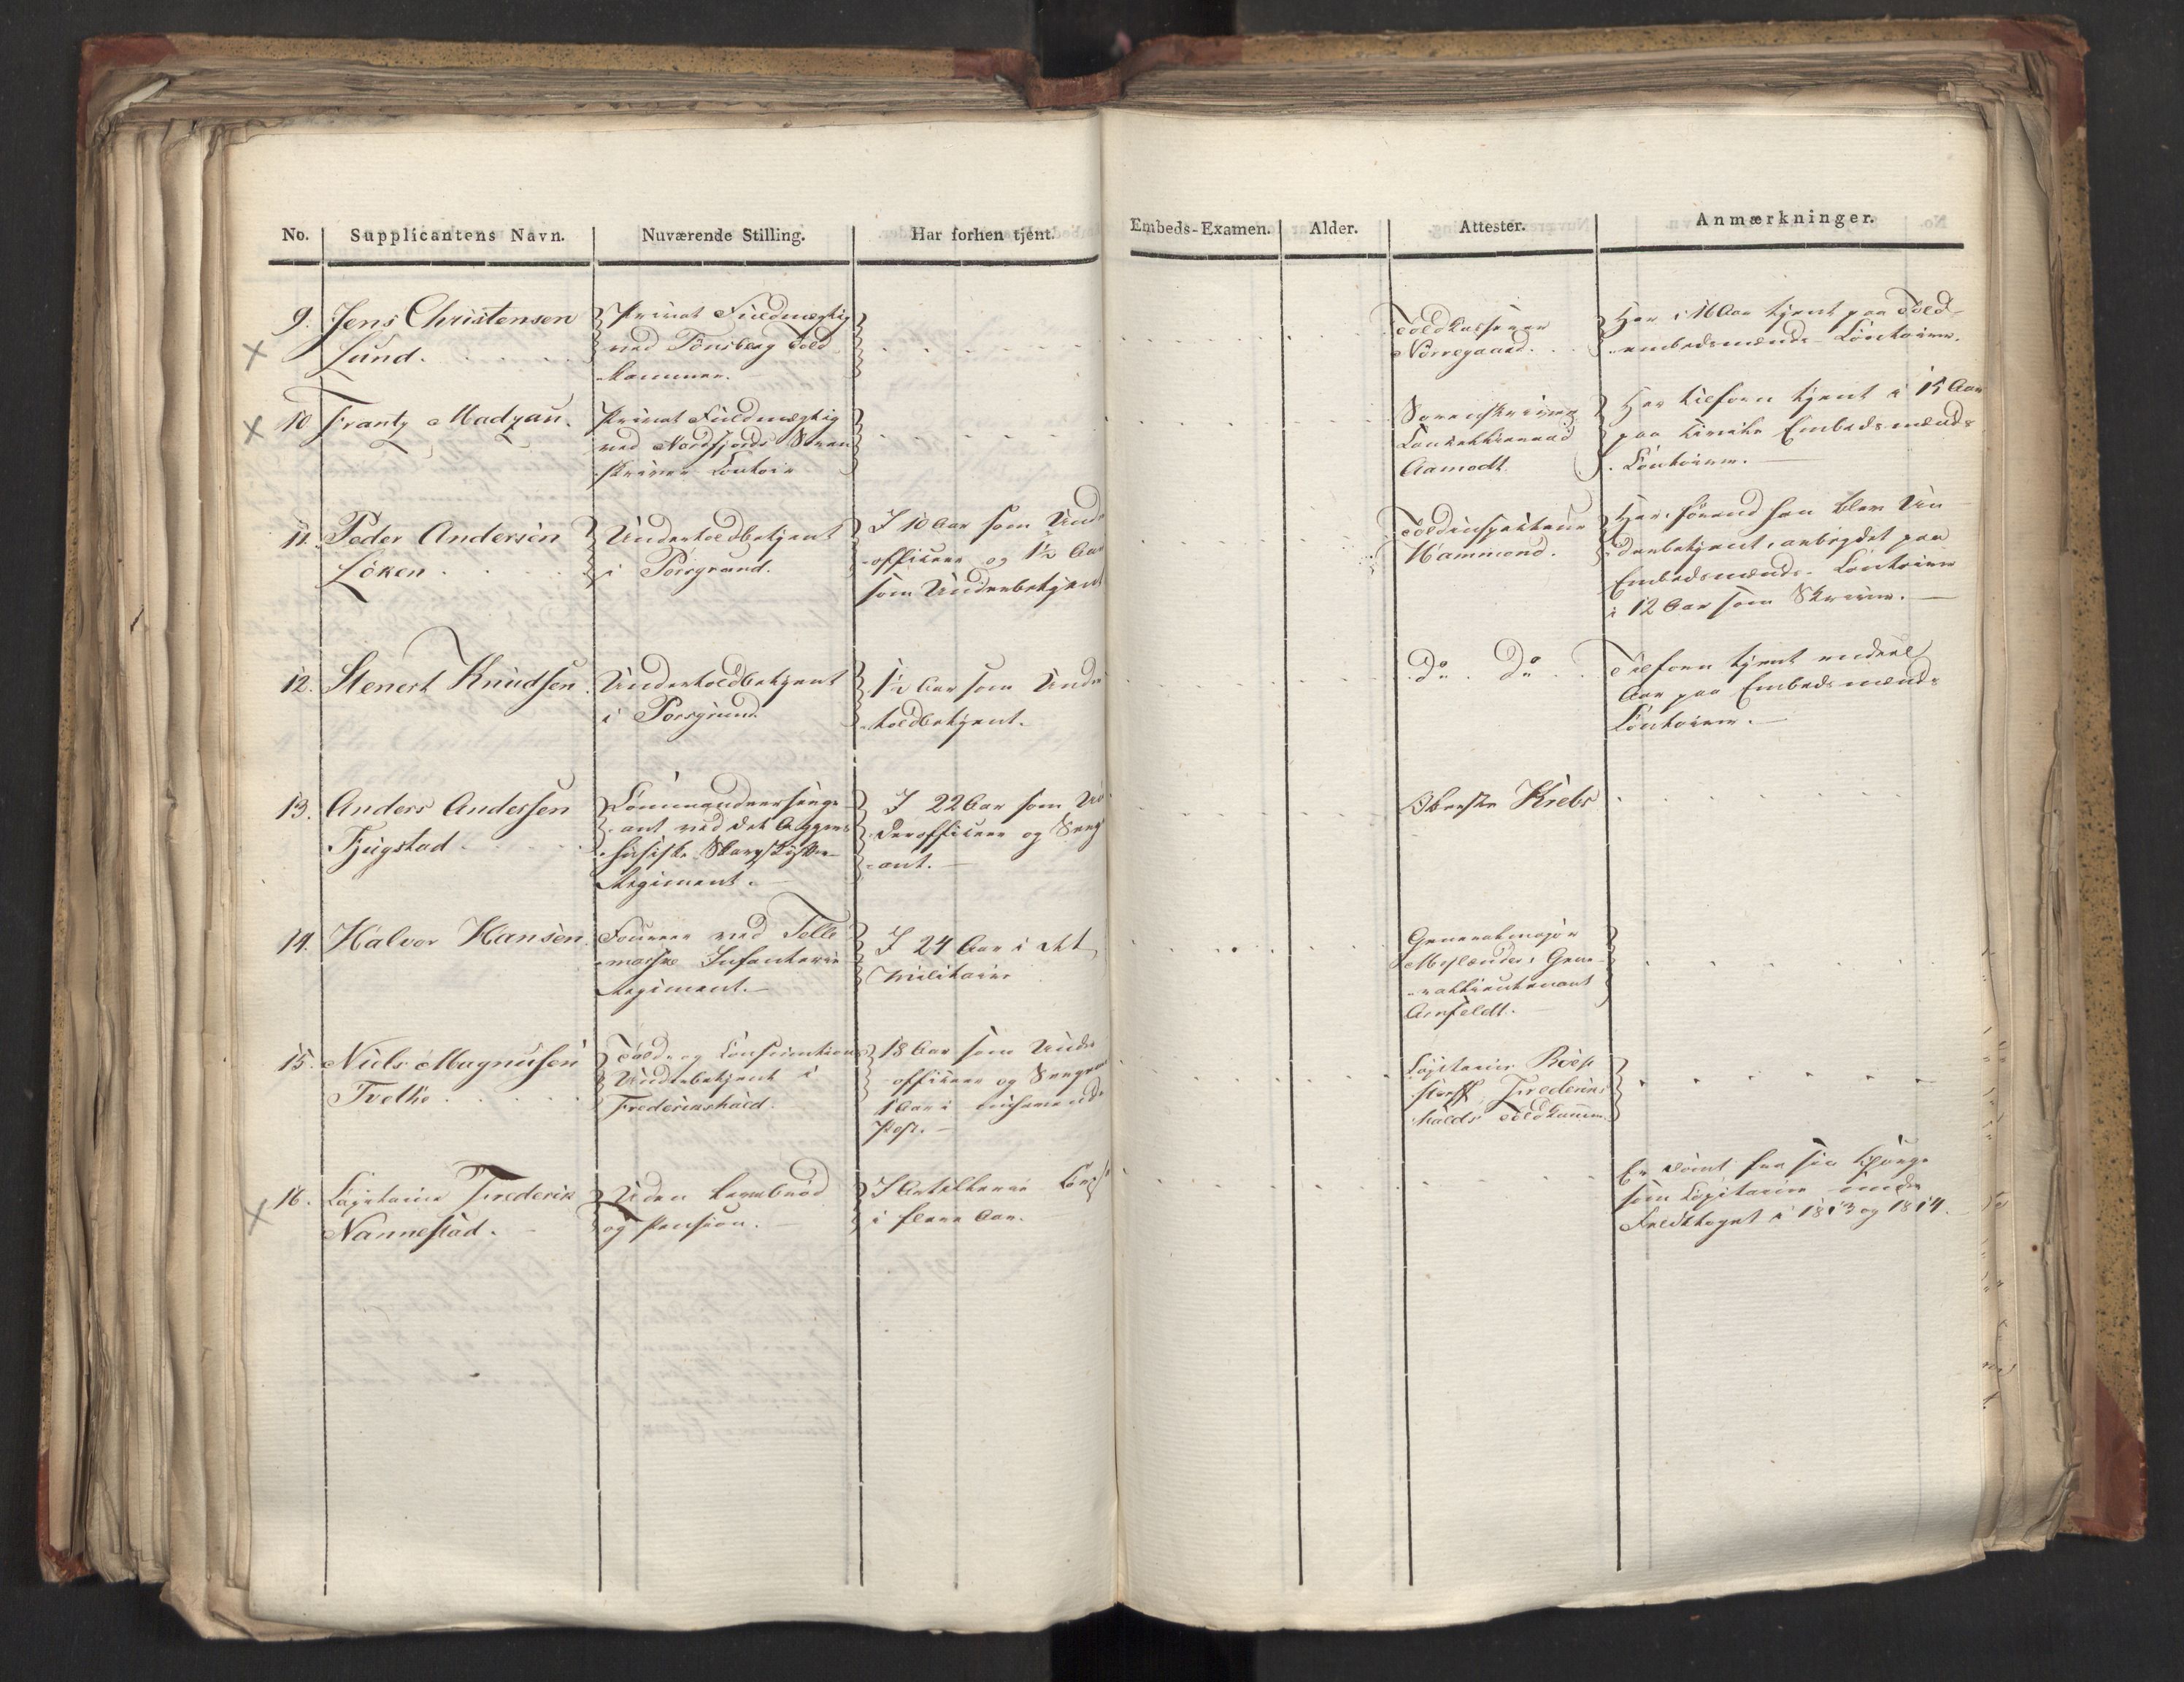 No. Supplicantens Navn. Nuværende Stilling. Har forhen tjent. Embeds-Examen. Alder. Attester. Anmærkninger.
9. Jens Christensen
Lund.
Privat Fuldmægtig
ved Tönsberg Told-
kammer.
Toldkasserer
Nörregaard.
Har i 16 Aar tjent paa Told-
embedsmænds Contoirer.
10 Frantz Madzau.
Privat Fuldmægtig
ved Nordfjords Soren
skriver Contoir
Sorenskriver
Cancelliraad
Aamodt
Har tilforn tjent i 15 Aar
paa civile Embedsmænds
Contoirer.
11. Peder Andersen
Löken
Undertoldbetjent
i Porsgrund.
I 10 Aar som Under
officeer og 1½ Aar
som Underbetjent
Toldinspecteur
Hammond.
Har,förend han blev Un
derbetjent, arbejdet paa
Embedsmænds Contoirer
i 12 Aar som Skriver.
12. Stenert Knudsen
Undertoldbetjent
i Porsgrund
1½ Aar som Under
toldbetjent.
Do. Do.
Tilforn tjent endeel
Aar paa Embedsmænds
Contoirer.
13. Anders Andersen
Tjugstad
Commandeerserge
ant ved det Aggers
husiske Skarpskytter
Regiment.
I 22 Aar som Un
derofficeer og Serg
ant.
Oberste Krebs
14. Halvor Hansen
Foureer ved Telle
markske Infanterie
Regiment.
I 24 Aar i det
Militaire
Generalmajor
Mejlænder, Gene
rallieutenant
Arnfeldt.
15. Niels Magnusen
Tvethe
Told- og Consumtions
Underbetjent i
Frederikshald.
18 Aar som Under
officeer og Sergeant
1 Aar i nuhavende
Post.
Capitaine
Frederiks
halds Toldkamm.
16. Capitaine Frederik
Nannestad.
Uden Levebröd
og Pension.
I Artillerie Corps
i flere Aar.
Er dömt fra sin Charge
som Capitaine under
Felttoget i 1813 og 1814.